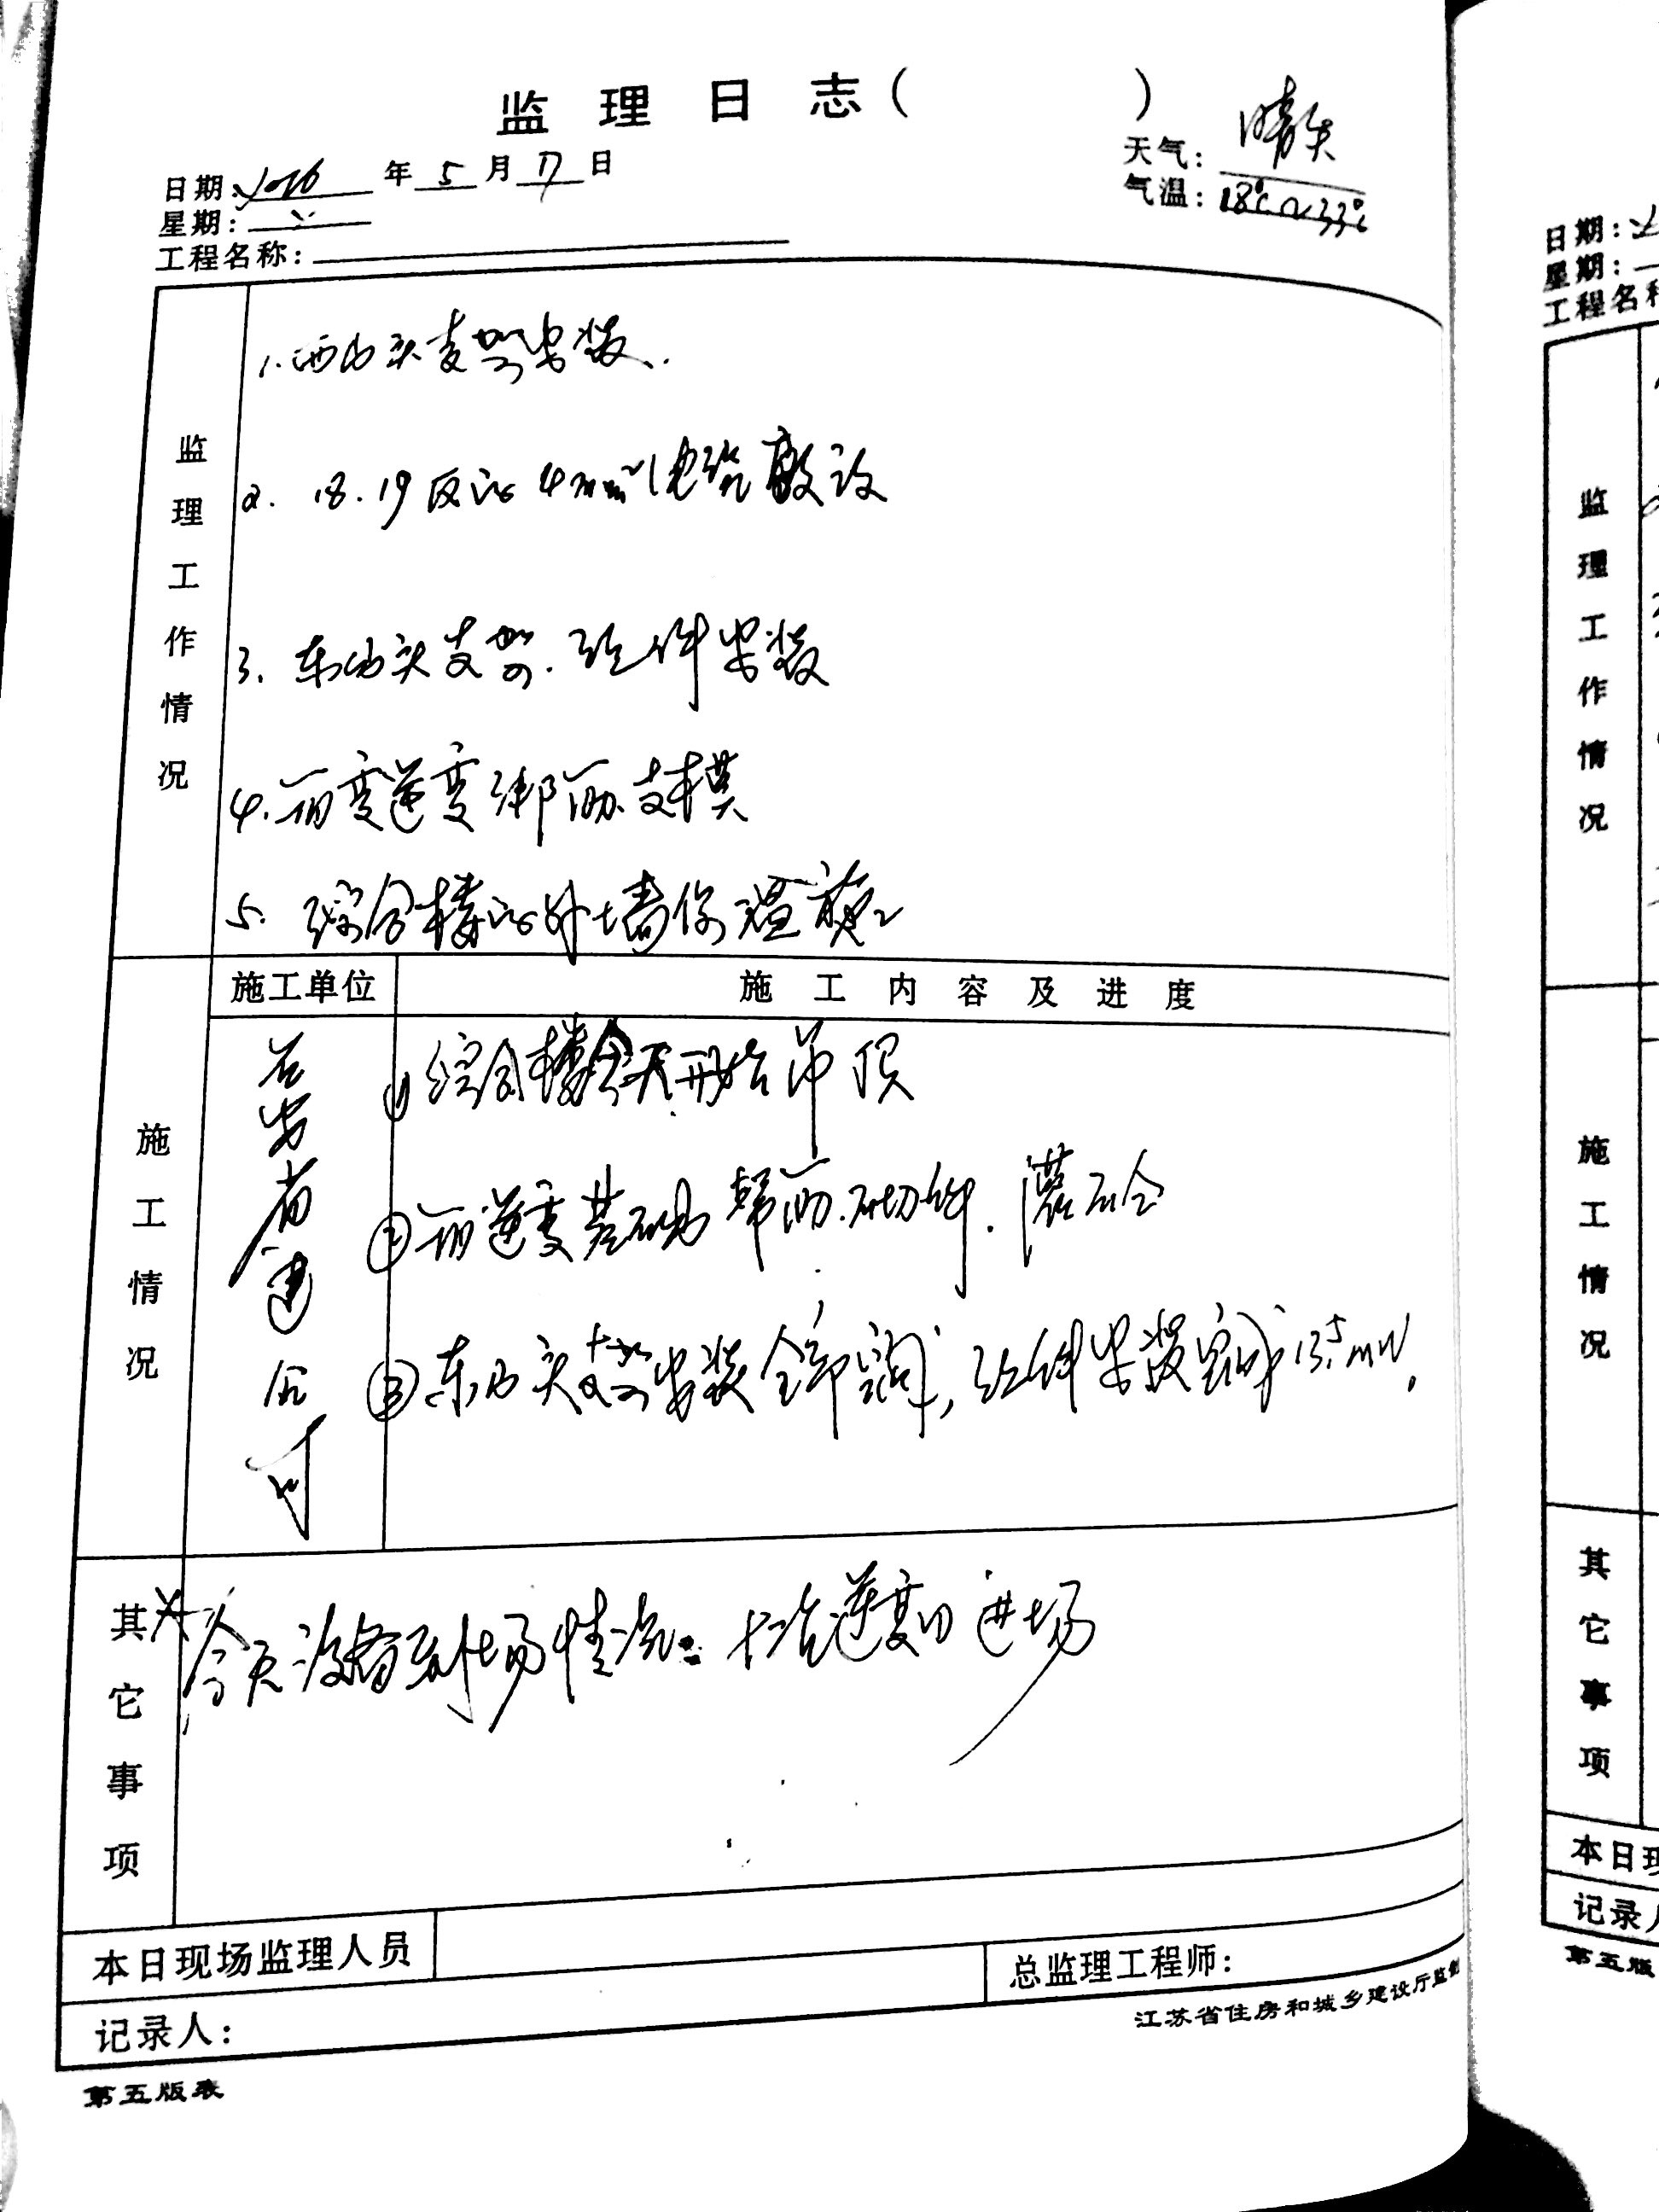 监理日志( )
日期:2016年5月17日
天气:晴天
星期:二
气温:18℃~33℃
工程名称:
监理工作情况
1.西山头支架安装.
2. 18.19区的4mm²电缆敷设
3. 东山头支架.组件安装
4.箱变逆变绑筋.支模
5. 综合楼的外墙保温
施工情况
施工单位
施工内容及进度
①综合楼今天开始吊顶
②箱逆变基础 筋.
③东山头支架安装全部,组件安装完成13.5mw.
其它事项
今天设备到场情况: 逆变 进场
本日现场监理人员
总监理工程师:
记录人:
江苏省住房和城乡建设厅监制
第五版表
日期:
星期:
工程名
监理工作情况
施工情况
其它事项
本日
记录
第五版